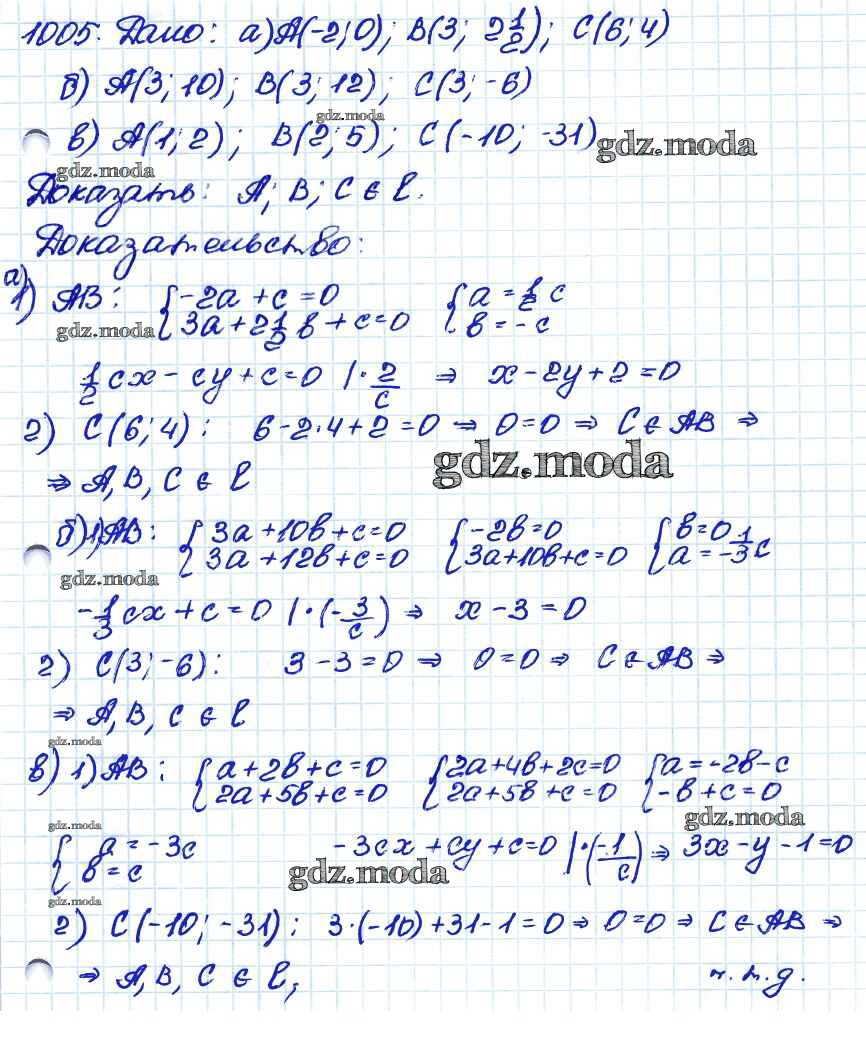 1005. Дано: а) A(-2; 0); B(3; 2 1/2); C(6; 4)
б) A(3; 10); B(3; 12); C(3; -6)
gdz.moda
в) A(1; 2); B(2; 5); C(-10; -31)
gdz.moda
gdz.moda
Доказать: A; B; C ∈ l.
Доказательство:
а)
1) AB: { -2a + c = 0 { a = 1/2 c
gdz.moda { 3a + 2 1/2 b + c = 0 { b = - c
1/2 cx - cy + c = 0 | · 2/c ⇒ x - 2y + 2 = 0
2) C(6; 4): 6 - 2·4 + 2 = 0 ⇒ 0 = 0 ⇒ C ∈ AB ⇒
gdz.moda
⇒ A, B, C ∈ l
б) 1) AB: { 3a + 10b + c = 0 { -2b = 0 { b = 0
{ 3a + 12b + c = 0 { 3a + 10b + c = 0 { a = -1/3 c
gdz.moda
-1/3 cx + c = 0 | · (-3/c) ⇒ x - 3 = 0
2) C(3; -6): 3 - 3 = 0 ⇒ 0 = 0 ⇒ C ∈ AB ⇒
⇒ A, B, C ∈ l
gdz.moda
в) 1) AB: { a + 2b + c = 0 { 2a + 4b + 2c = 0 { a = -2b - c
{ 2a + 5b + c = 0 { 2a + 5b + c = 0 { -b + c = 0
gdz.moda
gdz.moda
{ a = -3c -3cx + cy + c = 0 | · (-1/c) ⇒ 3x - y - 1 = 0
{ b = c
gdz.moda
gdz.moda
2) C(-10; -31): 3·(-10) + 31 - 1 = 0 ⇒ 0 = 0 ⇒ C ∈ AB ⇒
⇒ A, B, C ∈ l, ч.т.д.